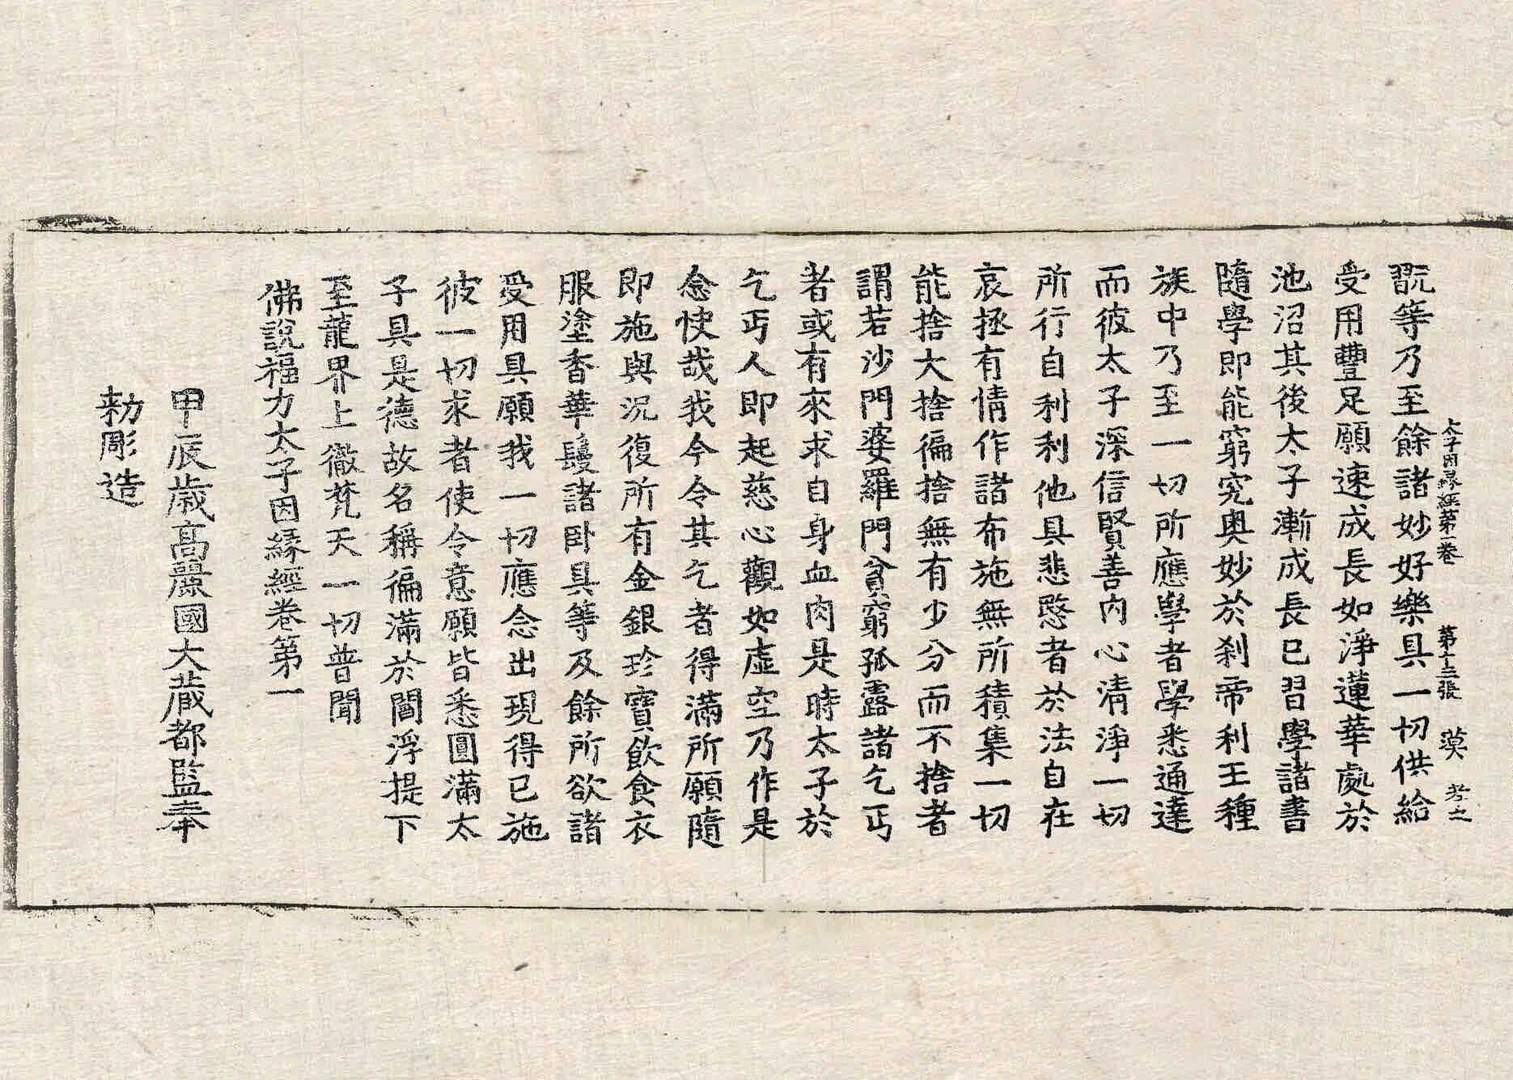 太子因緣經第一卷 第十三張 漠 孝之
翫等乃至餘諸妙好樂具一切供給
受用豐足願速成長如淨蓮華處於
池沼其後太子漸成長已習學諸書
隨學即能窮究奧妙於刹帝利王種
族中乃至一切所應學者學悉通達
而彼太子深信賢善內心清淨一切
所行自利利他具悲愍者於法自在
哀拯有情作諸布施無所積集一切
能捨大捨徧捨無有少分而不捨者
謂若沙門婆羅門貧窮孤露諸乞丐
者或有來求自身血肉是時太子於
乞丐人即起慈心觀如虛空乃作是
念快哉我今令其乞者得滿所願隨
即施與況復所有金銀珍寶飲食衣
服塗香華鬘諸卧具等及餘所欲諸
受用具願我一切應念出現得已施
彼一切求者使令意願皆悉圓滿太
子具是德故名稱徧滿於閻浮提下
至龍界上徹梵天一切普聞
佛說福力太子因緣經卷第一
甲辰歲高麗國大藏都監奉
勑彫造